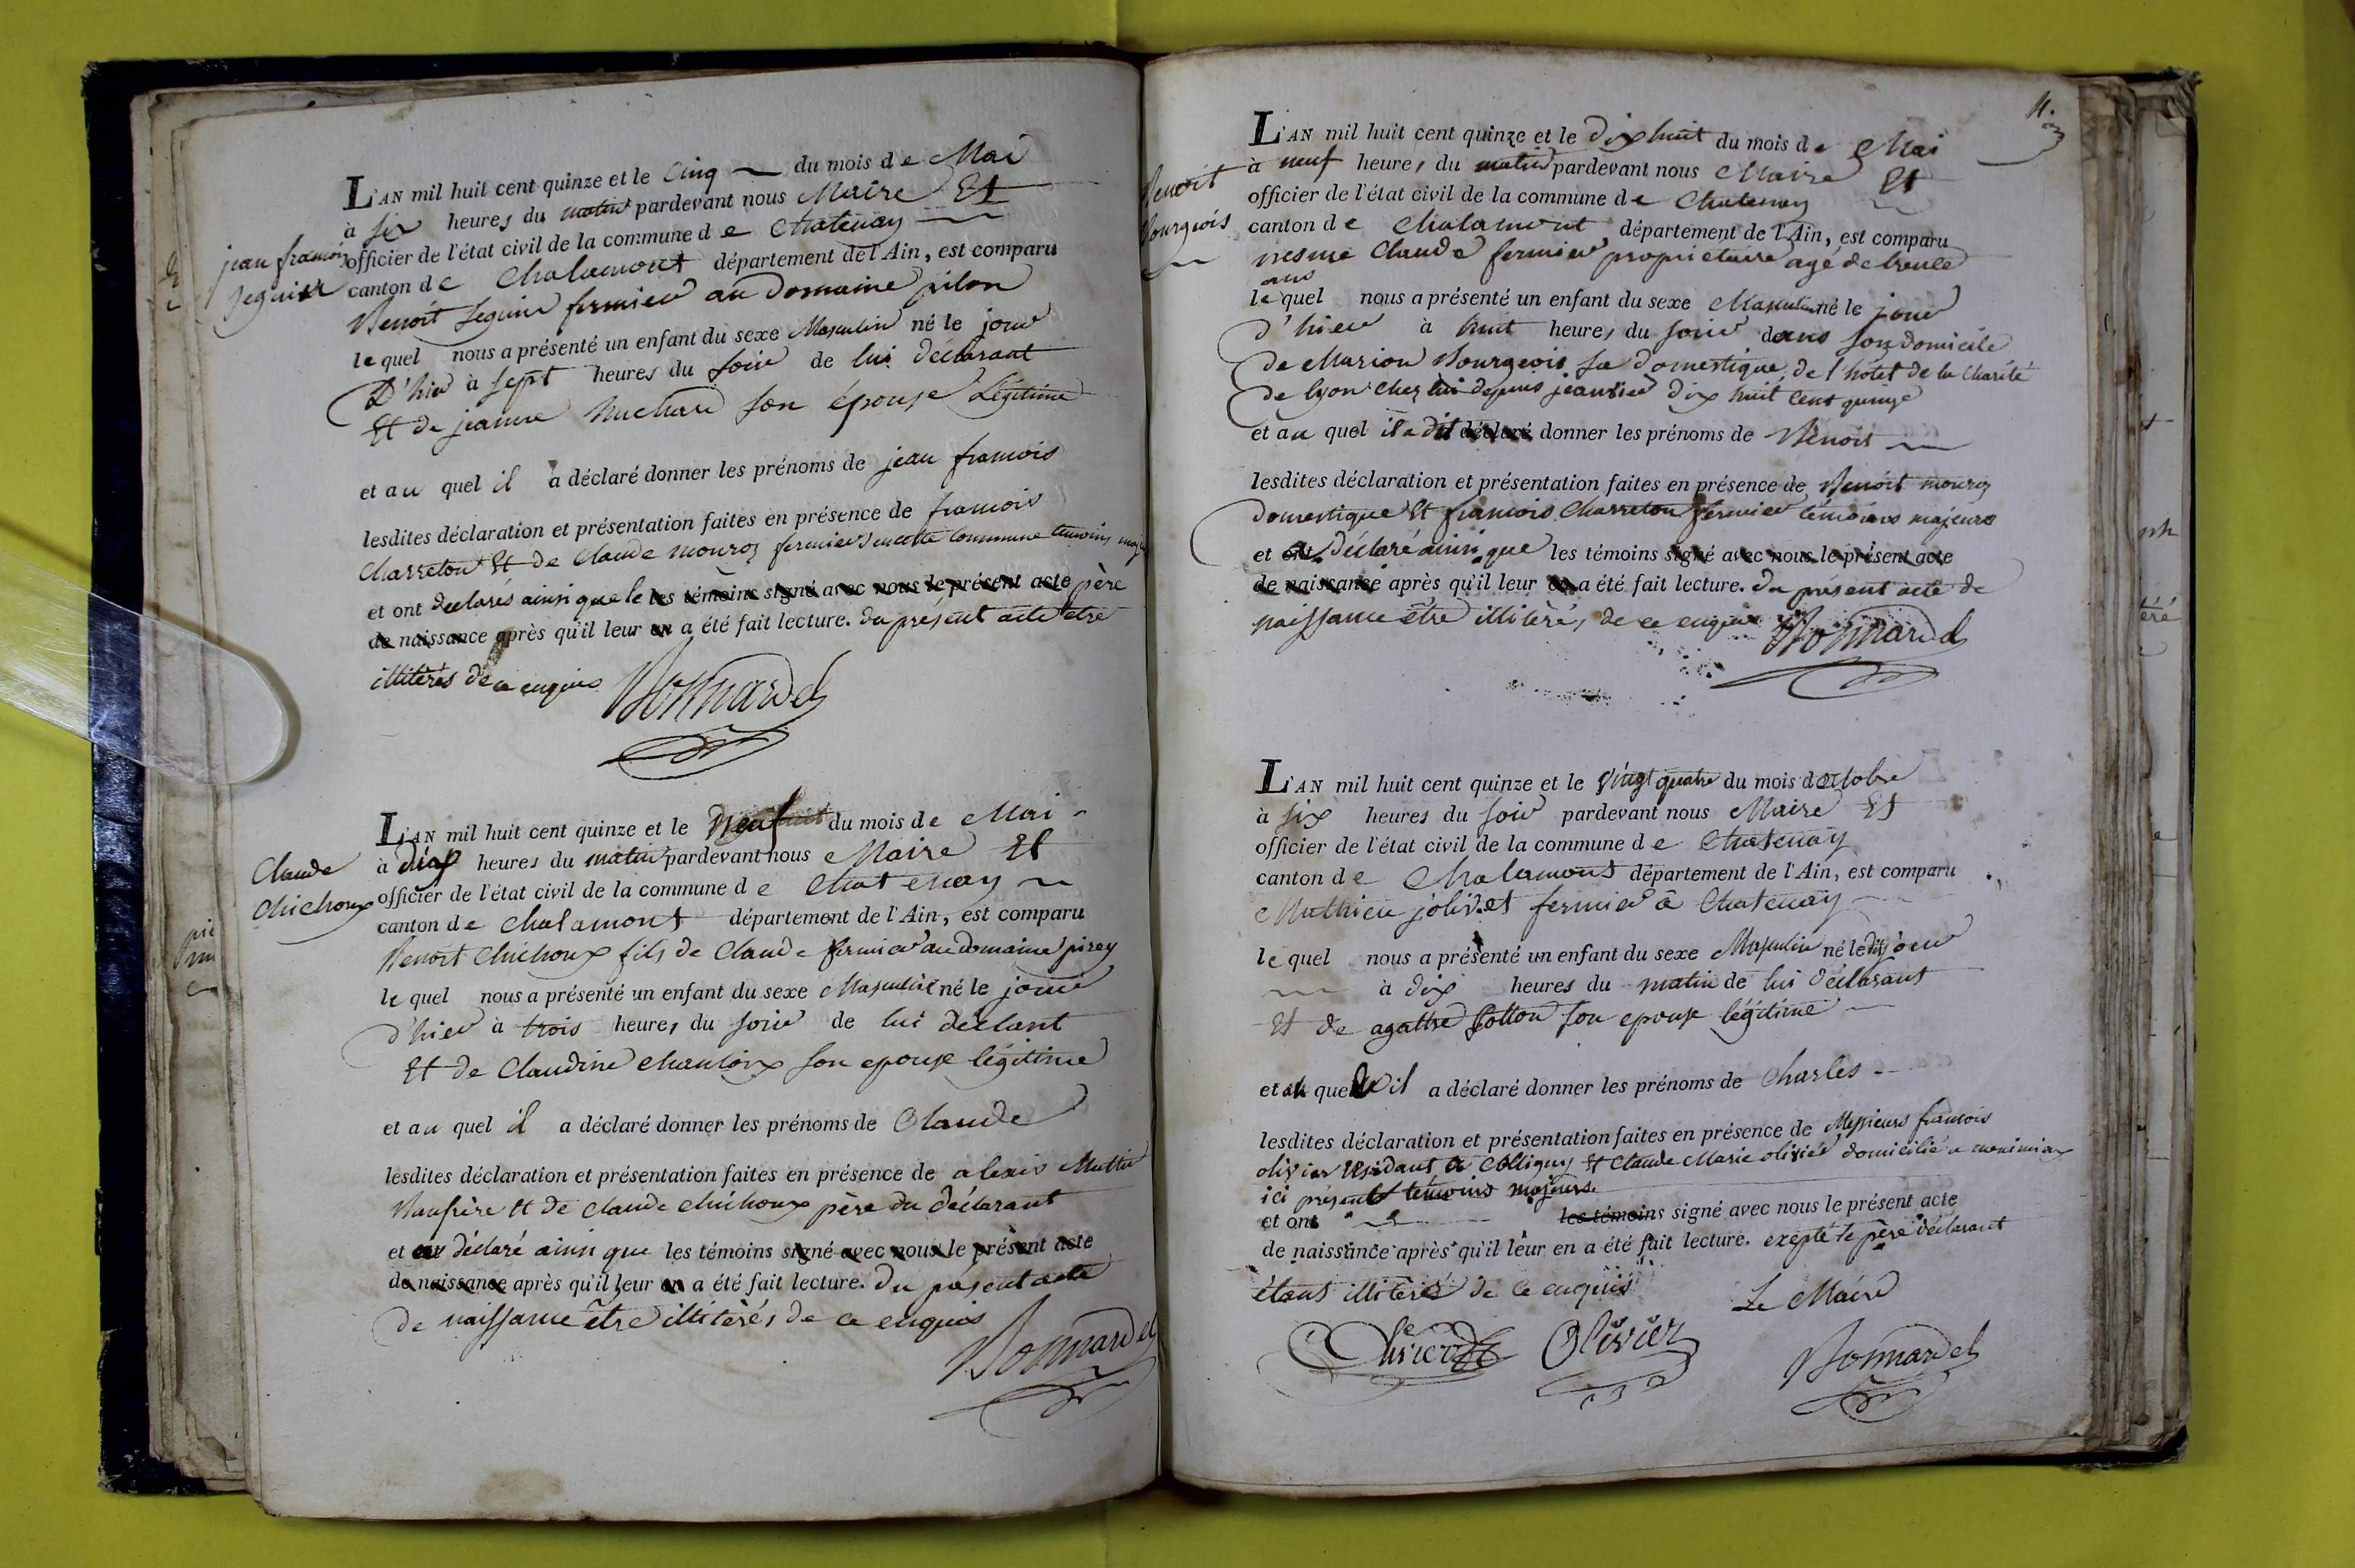 L'AN mil huit cent quinze et le Cinq du mois de Mai
à six heures du matin pardevant nous Maire Et
officier de l'état civil de la commune de Chatenay
jean francois
Seguin
canton de Chalamont département de l'Ain, est comparu
Benoit Seguin fermier au Domaine pilon
le quel nous a présenté un enfant du sexe Masculin né le jour
D'hier à sept heures du soir de lui déclarant
Et de jeanne son épouse Légitime
et au quel il a déclaré donner les prénoms de jean francois
lesdites déclaration et présentation faites en présence de francois
Charreton Et de Claude mouroz fermiers en cette Commune temoins
et ont declarés ainsi que le les témoins signé avec nous le présent acte père
de naissance après qu'il leur en a été fait lecture. du présent acte etre
illitérés de ce enquis
Bonnardel
L'AN mil huit cent quinze et le Neuf du mois de Mai
à dix heures du matin pardevant nous Maire Et
Claude
Chichoux
officier de l'état civil de la commune de Chatenay
canton de Chalamont département de l'Ain, est comparu
Benoit Chichoux fils de Claude fermier au domaine pirey
le quel nous a présenté un enfant du sexe Masculin né le jour
d'hier à trois heures du soir de lui déclant
Et de Claudine son epouse légitime
et au quel il a déclaré donner les prénoms de Claude
lesdites déclaration et présentation faites en présence de alexis
Et de Claude Chichoux père du déclarant
et déclaré ainsi que les témoins signé avec nous le présent acte
de naissance après qu'il leur en a été fait lecture. Du présent acte
de naissance être illitérés de ce enquis
Bonnardel
11.
L'AN mil huit cent quinze et le Dix huit du mois de Mai
à neuf heures du matin pardevant nous Maire Et
Benoit
Bourgeois
officier de l'état civil de la commune de Chatenay
canton de Chalamont département de l'Ain, est comparu
mesme Claude fermier propriétaire agé de trente
ans
le quel nous a présenté un enfant du sexe Masculin né le jour
d'hier à huit heures du soir dans son domicile
de Marion Bourgeois sa domestique de l'hotel de la Charité
de lyon chez lui depuis jeanvier dix huit Cent quinze
et au quel il a dit déclaré donner les prénoms de Benoit
lesdites déclaration et présentation faites en présence de Benoit mouroz
domestique Et francois Charreton fermier témoins majeurs
et ont déclaré ainsi que les témoins signé avec nous le présent acte
de naissance après qu'il leur en a été fait lecture. du présent acte de
naissance être illitérés de ce enquis Bonnardel
L'AN mil huit cent quinze et le Vingt quatre du mois doctobre
à six heures du soir pardevant nous Maire Et
officier de l'état civil de la commune de Chatenay
canton de Chalamont département de l'Ain, est comparu
Mathieu jolivet fermier à Chatenay
le quel nous a présenté un enfant du sexe Masculin né ledit jour
à dix heures du matin de lui déclarant
Et de agathe Cotton son epouse légitime
et au quel il a déclaré donner les prénoms de Charles
lesdites déclaration et présentation faites en présence de Messieurs francois
olivier résidant à Colligny Et Claude Marie olivier domicilié a
ici présents temoins majeurs.
et ont les témoins signé avec nous le présent acte
de naissance après qu'il leur en a été fait lecture. exepté le père déclarant
étant illitéré de ce enquis
Le Maire
Olivier Olivier Bonnardel